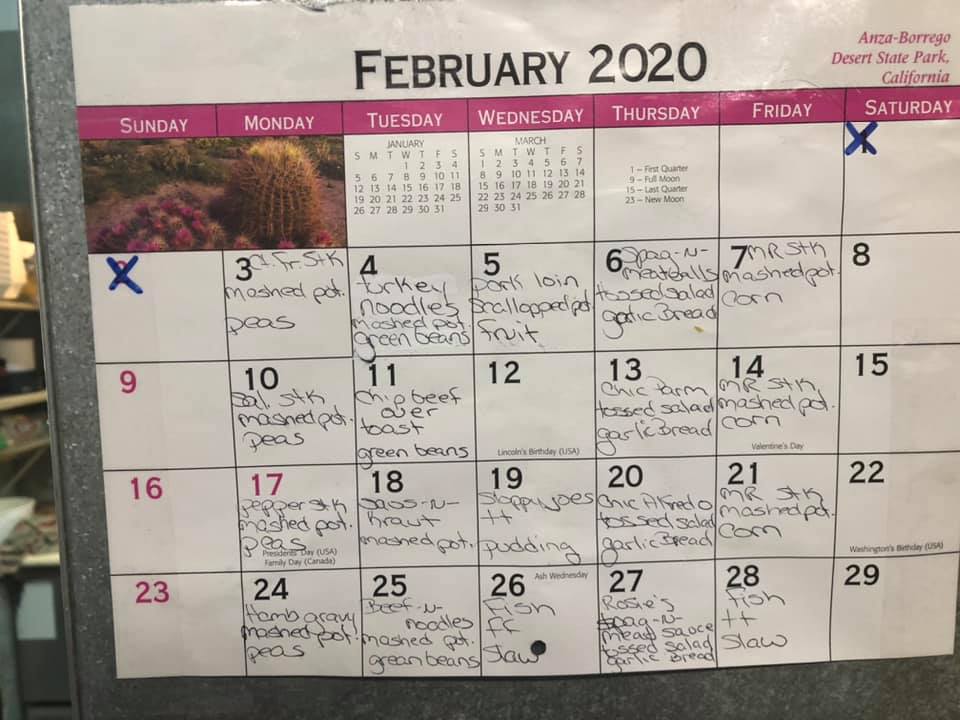 FEBRUARY 2020
Anza-Borrego
Desert State Park,
California
SUNDAY MONDAY TUESDAY WEDNESDAY THURSDAY FRIDAY SATURDAY
JANUARY
S M T W T F S
1 2 3 4
5 6 7 8 9 10 11
12 13 14 15 16 17 18
19 20 21 22 23 24 25
26 27 28 29 30 31
MARCH
S M T W T F S
1 2 3 4 5 6 7
8 9 10 11 12 13 14
15 16 17 18 19 20 21
22 23 24 25 26 27 28
29 30 31
1 – First Quarter
9 – Full Moon
15 – Last Quarter
23 – New Moon
1
2
3
Stk
mashed pot.
peas
4
turkey
noodles
mashed pot.
green beans
5
pork loin
Scallopped pot
fruit
6
Spag-n-
meatballs
tossed salad
garlic Bread
7
MR Stk
mashed pot.
corn
8
9
10
Sal Stk
mashed pot.
peas
11
Chip beef
over
toast
green beans
12
Lincoln's Birthday (USA)
13
Chic Parm
tossed salad
garlic Bread
14
MR Stk
mashed pot.
corn
Valentine's Day
15
16
17
pepper stk
mashed pot.
peas
Presidents' Day (USA)
Family Day (Canada)
18
saus-n-
Kraut
mashed pot.
19
Sloppy joes
tt
pudding
20
Chic Alfredo
tossed salad
garlic Bread
21
MR Stk
mashed pot.
corn
22
Washington's Birthday (USA)
23
24
Hamb gravy
mashed pot.
peas
25
Beef-n-
noodles
mashed pot.
green beans
26
Ash Wednesday
Fish
ff
Slaw
27
Rosie's
Spag-n-
meat sauce
tossed salad
garlic Bread
28
Fish
tt
Slaw
29